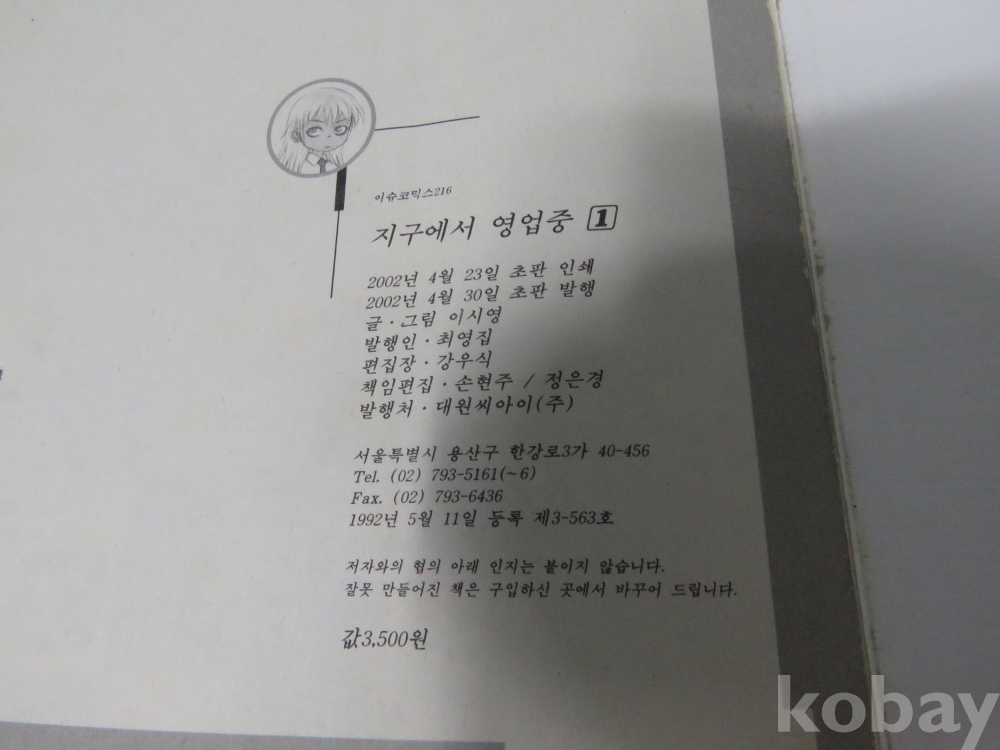 이슈코믹스216
지구에서 영업중 1
2002년 4월 23일 초판 인쇄
2002년 4월 30일 초판 발행
글·그림 이시영
발행인·최영집
편집장·강우식
책임편집·손현주 / 정은경
발행처·대원씨아이(주)
서울특별시 용산구 한강로3가 40-456
Tel. (02) 793-5161(~6)
Fax. (02) 793-6436
1992년 5월 11일 등록 제3-563호
저자와의 협의 아래 인지는 붙이지 않습니다.
잘못 만들어진 책은 구입하신 곳에서 바꾸어 드립니다.
값3,500원
kobay